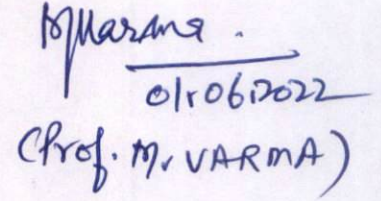 MVarma.
01.06.2022
(Prof. M. VARMA)